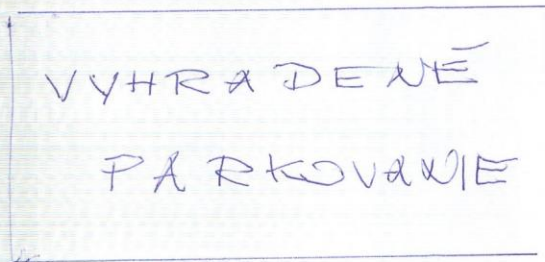 VYHRADENÉ
PARKOVANIE